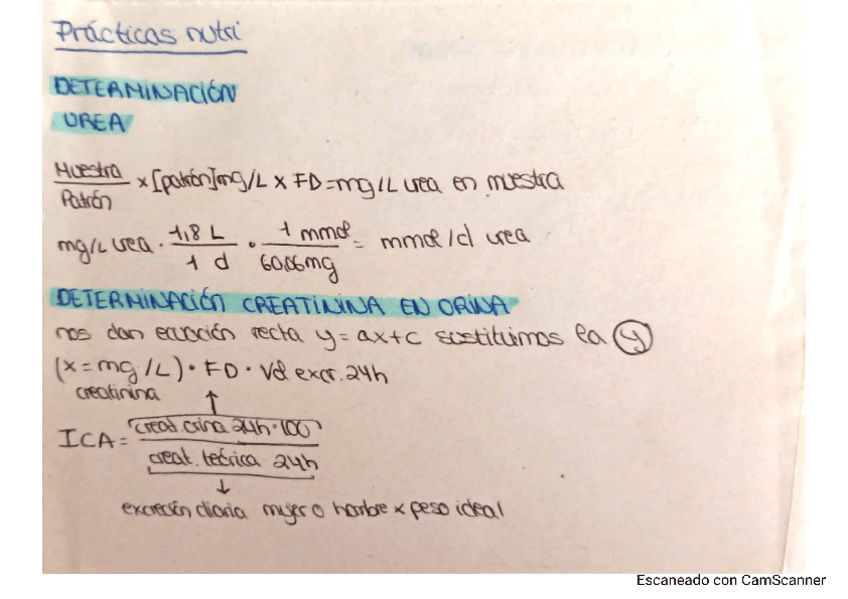 Prácticas nutri
DETERMINACIÓN
UREA
Muestra
Patrón
x [patrón]mg/L x FD=mg/L urea en muestra
mg/L urea · 1,8 L / 1 d · 1 mmol / 60,06mg = mmol/d urea
DETERMINACIÓN CREATININA EN ORINA
nos dan ecuación recta y=ax+c sustituimos la y
(x=mg/L) · FD · Vol excr. 24h
creatinina
ICA= creat. orina 24h·100
creat. teórica 24h
excreción diaria mujer o hombre x peso ideal
Escaneado con CamScanner